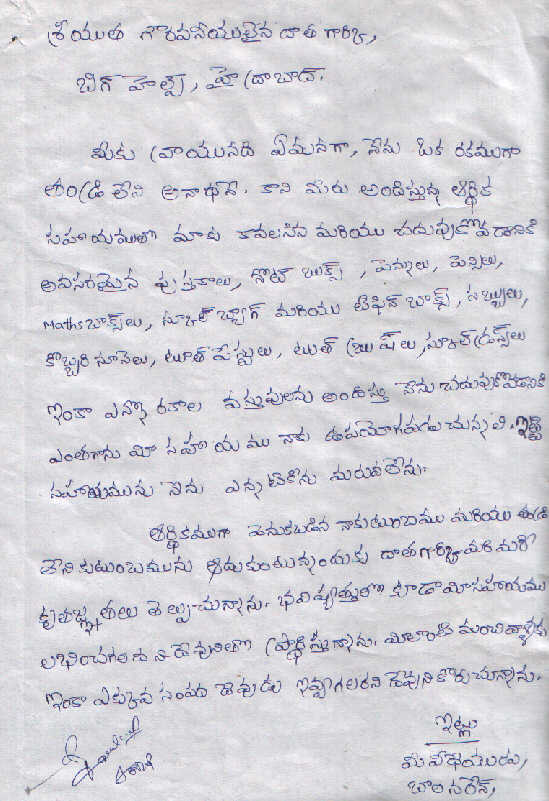 శ్రీయుత గౌరవనీయులైన దాత గార్కి,
బిగ్ హెల్ప్, హైద్రాబాద్.
మీకు వ్రాయునది ఏమనగా, నేను ఒక రకముగా
తండ్రి లేని అనాథనే. కాని మీరు అందిస్తున్న ఆర్థిక
సహాయముతో మాకు కావలసిన మరియు చదువుకోవడానికి
అవసరమైన పుస్తకాలు, నోట్ బుక్స్, పెన్నులు, పెన్సిలు,
Maths బాక్స్‌లు, స్కూల్ బ్యాగ్ మరియు టిఫిన్ బాక్స్, సబ్బులు,
కొబ్బరి నూనెలు, టూత్ పేస్టులు, టూత్ బ్రష్‌లు, స్కూల్ డ్రస్‌లు
ఇంకా ఎన్నో రకాల వస్తువులను అందిస్తు నేను చదువుకోవడానికి
ఎంతగాను మీ సహాయము నాకు ఉపయోగపడుచున్నవి. ఇట్టి
సహాయమును నేను ఎన్నటికిని మరువలేను.
ఆర్థికముగా వెనుకబడిన నాకుటుంబము మరియు తండ్రి
లేని కుటుంబమును ఆదుకుంటున్నందుకు దాతగార్కి మరి మరి
కృతజ్ఞతలు తెల్పుచున్నాను. భవిష్యత్తులో కూడా మీ సహాయము
లభించగలదని నా దేవునితో ప్రార్థిస్తున్నాను. మీలాంటి మంచి వ్యక్తికి
ఇంకా ఎక్కువ సంపద దేవుడు ఇవ్వగలడని దేవుని కోరుచున్నాను.
ఇట్లు
మీ విధేయుడు,
బాల నరేష్,